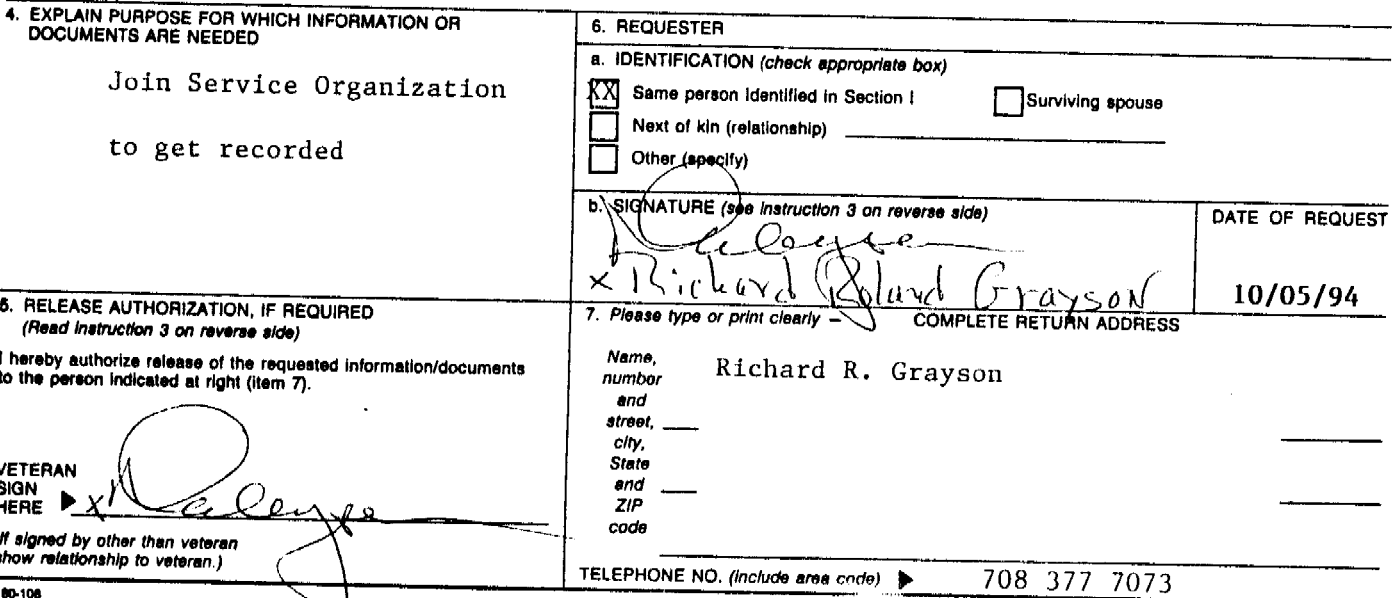 4. EXPLAIN PURPOSE FOR WHICH INFORMATION OR
DOCUMENTS ARE NEEDED
Join Service Organization
to get recorded
5. RELEASE AUTHORIZATION, IF REQUIRED
(Read instruction 3 on reverse side)
I hereby authorize release of the requested information/documents
to the person indicated at right (item 7).
VETERAN
SIGN
HERE ▶ x
(If signed by other than veteran
show relationship to veteran.)
80-108
6. REQUESTER
a. IDENTIFICATION (check appropriate box)
XX Same person identified in Section I Surviving spouse
Next of kin (relationship)
Other (specify)
b. SIGNATURE (see instruction 3 on reverse side)
x Richard Roland Grayson
DATE OF REQUEST
10/05/94
7. Please type or print clearly – COMPLETE RETURN ADDRESS
Name,
number
and
street,
city,
State
and
ZIP
code
Richard R. Grayson
TELEPHONE NO. (include area code) ▶ 708 377 7073